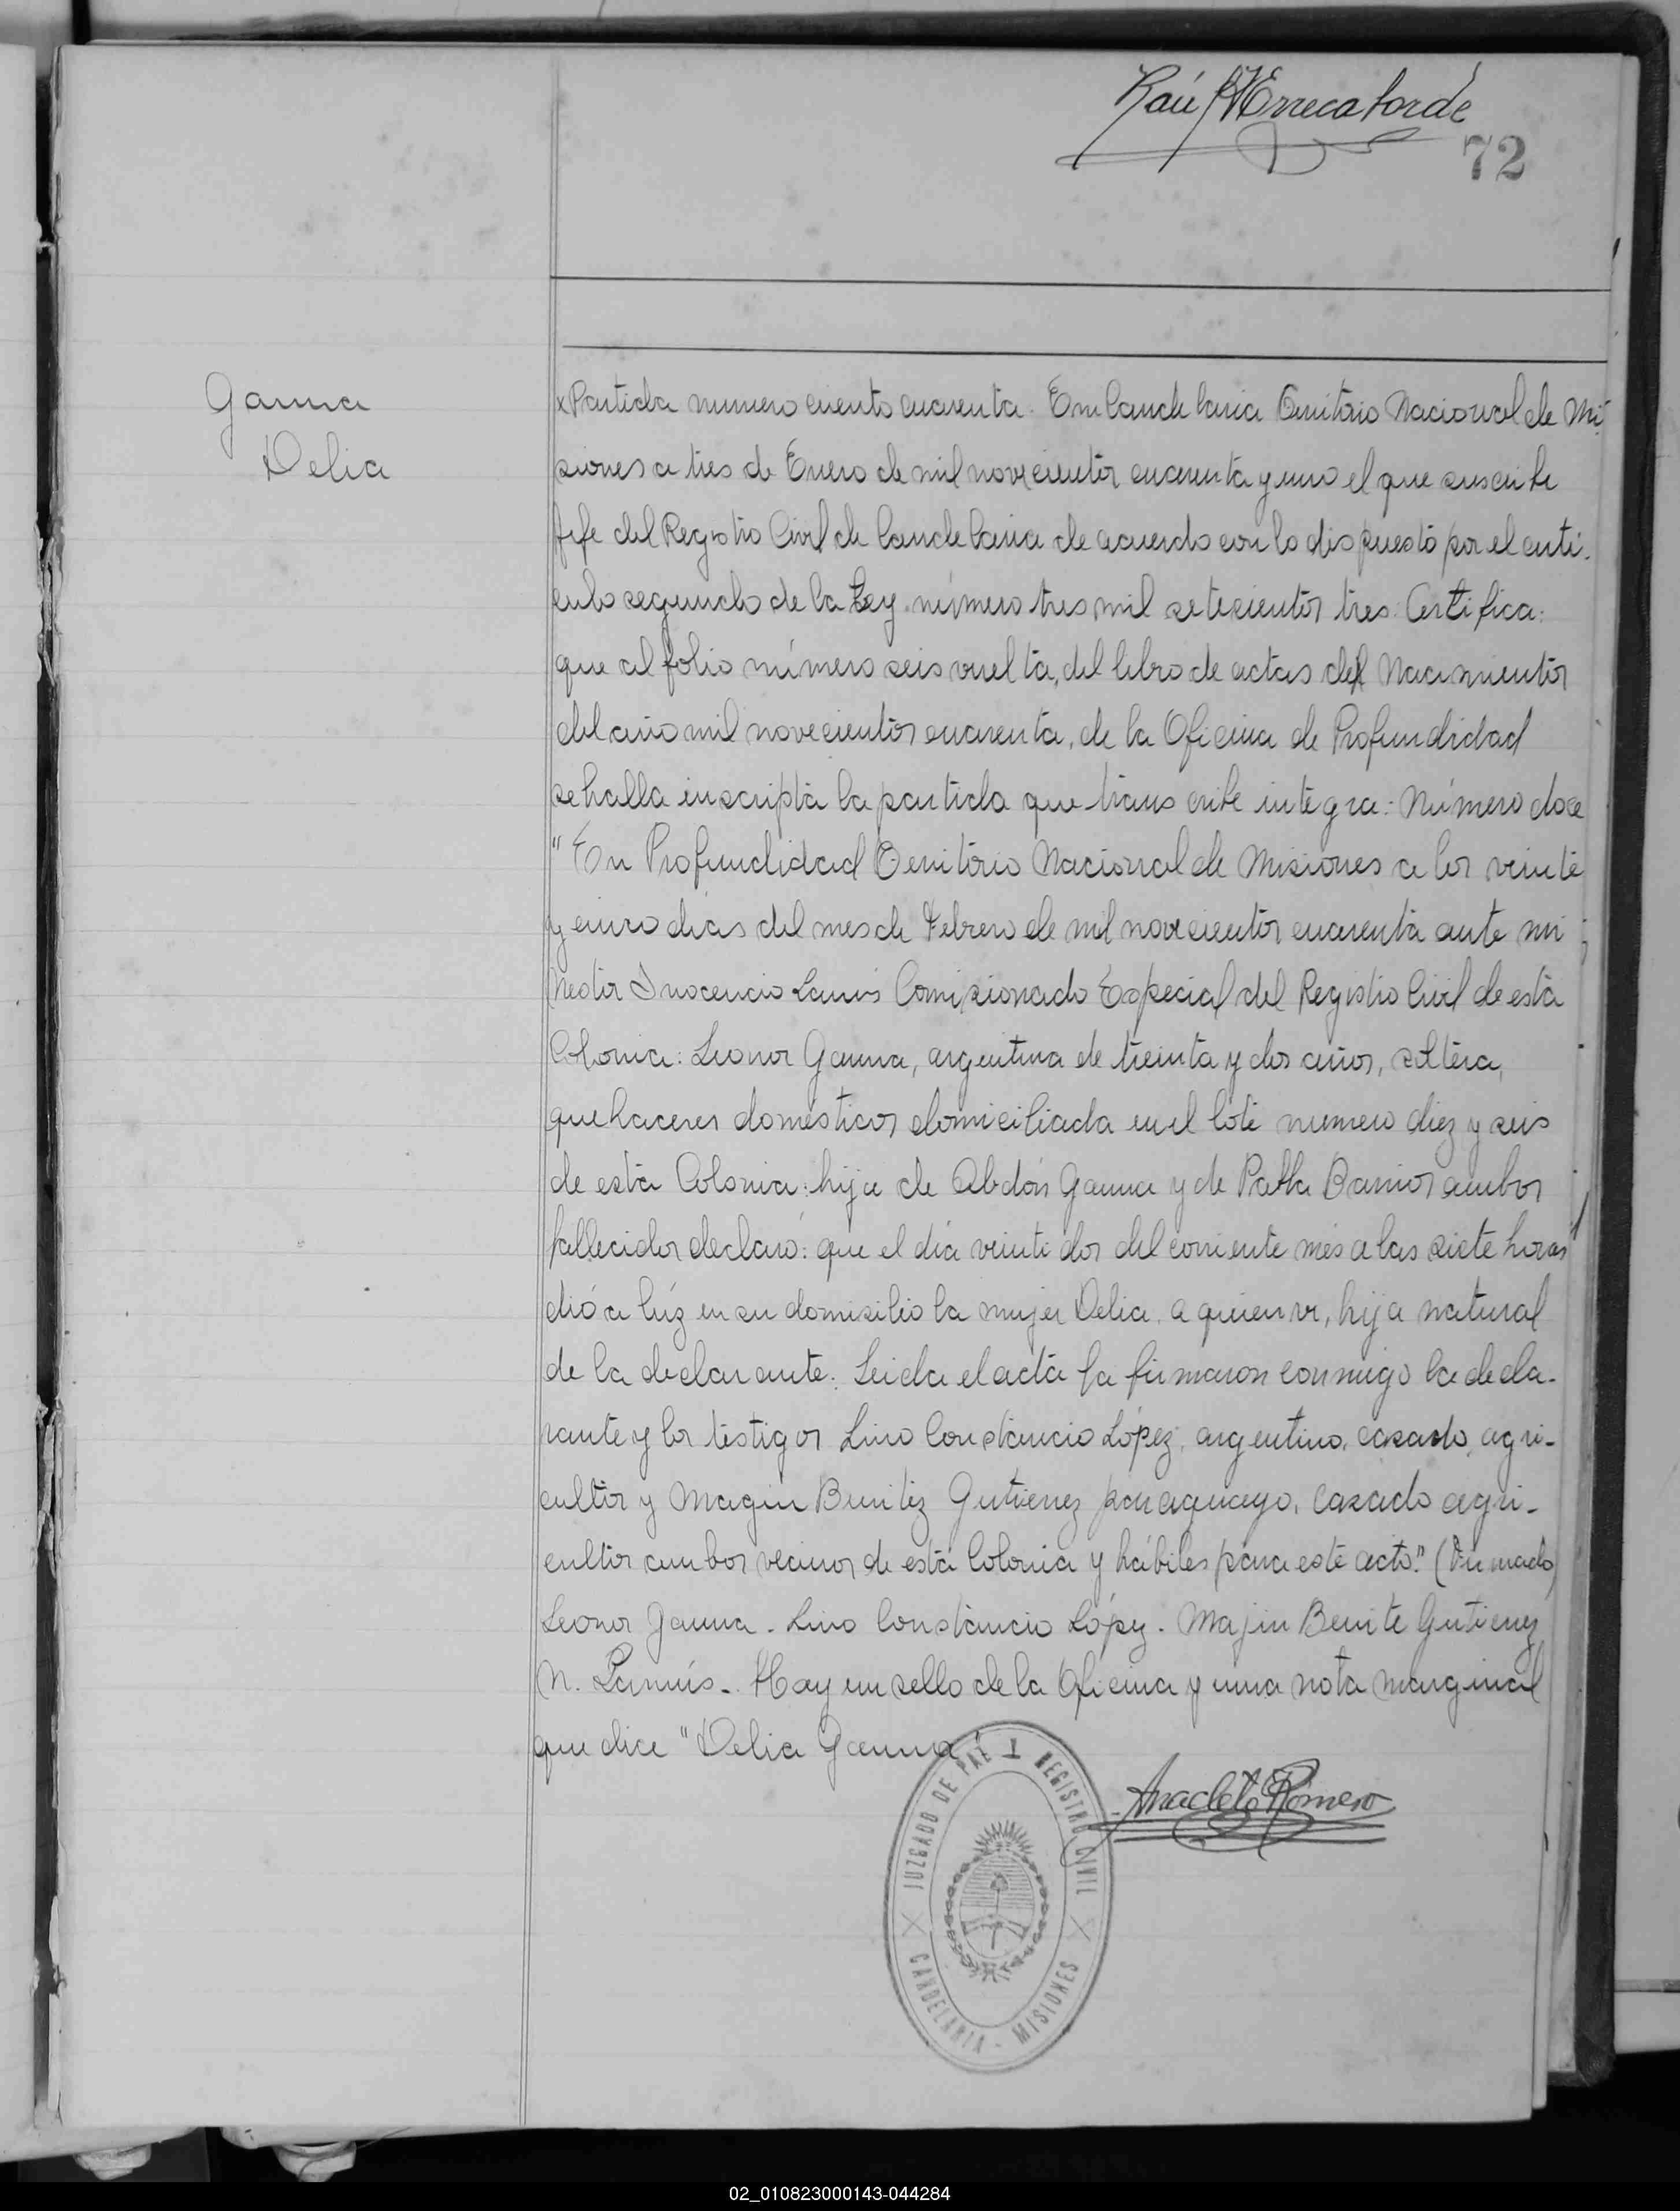 Raúl H Errecaborde
72
Gauna
Delia
x Partida numero ciento cuarenta. En Candelaria Territorio Nacional de Mi-
siones a tres de Enero de mil novecientos cuarenta y uno el que suscribe
Jefe del Registro Civil de Candelaria de acuerdo con lo dispuesto por el artí-
culo segundo de la Ley número tres mil setecientos tres: Certifica:
que al folio número seis vuelta, del libro de actas de Nacimientos
del año mil novecientos cuarenta, de la Oficina de Profundidad
se halla inscripta la partida que transcribe integra: Número doce
"En Profundidad Territorio Nacional de Misiones a los veinte
y cinco días del mes de Febrero de mil novecientos cuarenta ante mi
Nestor Inocencio Lanús Comisionado Especial del Registro Civil de esta
Colonia: Leonor Gauna, argentina de treinta y dos años, soltera,
quehaceres domésticos domiciliada en el lote numero diez y seis
de esta Colonia: hija de Abdón Gauna y de Pabla Barrios ambos
fallecidos declaró: que el día veintidos del corriente més a las siete horas
dió a lúz en su domisilio la mujer Delia, a quien vi, hija natural
de la declarante: Leida el acta la firmaron conmigo la decla-
rante y los testigos Lino Constancio López, argentino, casado, agri-
cultor y Magin Benitez Gutierrez paraguayo, casado agri-
cultor ambos vecinos de esta Colonia y hábiles para este acto." (Firmado)
Leonor Gauna. Lino Constancio López. Majin Benite Gutierrez
N. Lanús. Hay un sello de la Oficina y una nota marginal
que dice "Delia Gauna"
JUZGADO DE PAZ Y REGISTRO CIVIL
CANDELARIA - MISIONES
Anacleto Romero
02_010823000143-044284